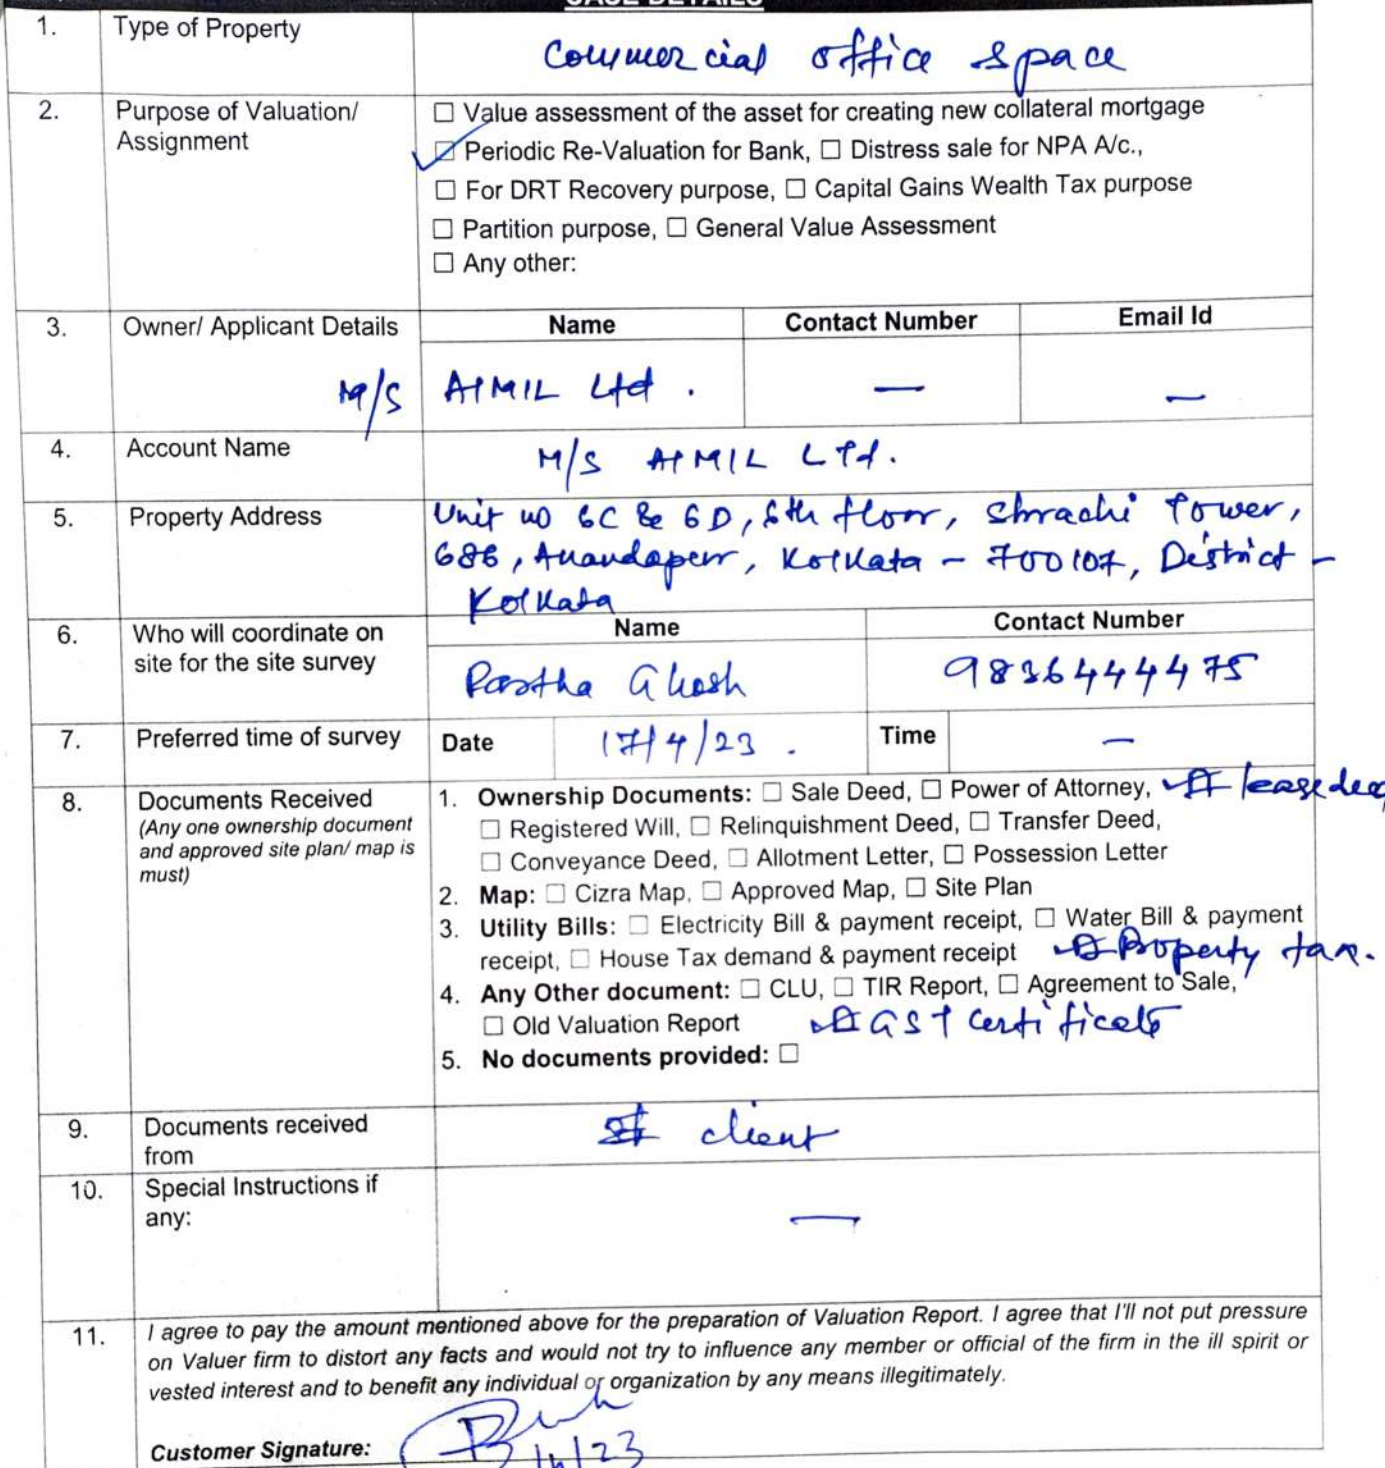 CASE DETAILS
1. Type of Property Commercial office space
2. Purpose of Valuation/ Assignment
☐ Value assessment of the asset for creating new collateral mortgage
☑ Periodic Re-Valuation for Bank, ☐ Distress sale for NPA A/c.,
☐ For DRT Recovery purpose, ☐ Capital Gains Wealth Tax purpose
☐ Partition purpose, ☐ General Value Assessment
☐ Any other:
3. Owner/ Applicant Details Name Contact Number Email Id
M/S AIMIL Ltd. — —
4. Account Name M/S AIMIL LTd.
5. Property Address Unit no 6C & 6D, 6th floor, Shrachi Tower,
686, Anandapur, Kolkata - 700107, District -
Kolkata
6. Who will coordinate on Name Contact Number
site for the site survey Partha Ghosh 9836444475
7. Preferred time of survey Date 17/4/23. Time —
8. Documents Received
(Any one ownership document
and approved site plan/ map is
must)
1. Ownership Documents: ☐ Sale Deed, ☐ Power of Attorney, ☑ lease deed
☐ Registered Will, ☐ Relinquishment Deed, ☐ Transfer Deed,
☐ Conveyance Deed, ☐ Allotment Letter, ☐ Possession Letter
2. Map: ☐ Cizra Map, ☐ Approved Map, ☐ Site Plan
3. Utility Bills: ☐ Electricity Bill & payment receipt, ☐ Water Bill & payment
receipt, ☐ House Tax demand & payment receipt ☑ Property tax.
4. Any Other document: ☐ CLU, ☐ TIR Report, ☐ Agreement to Sale,
☐ Old Valuation Report ☑ GST Certificate
5. No documents provided: ☐
9. Documents received client
from
10. Special Instructions if —
any:
11. I agree to pay the amount mentioned above for the preparation of Valuation Report. I agree that I'll not put pressure
on Valuer firm to distort any facts and would not try to influence any member or official of the firm in the ill spirit or
vested interest and to benefit any individual or organization by any means illegitimately.
Customer Signature: